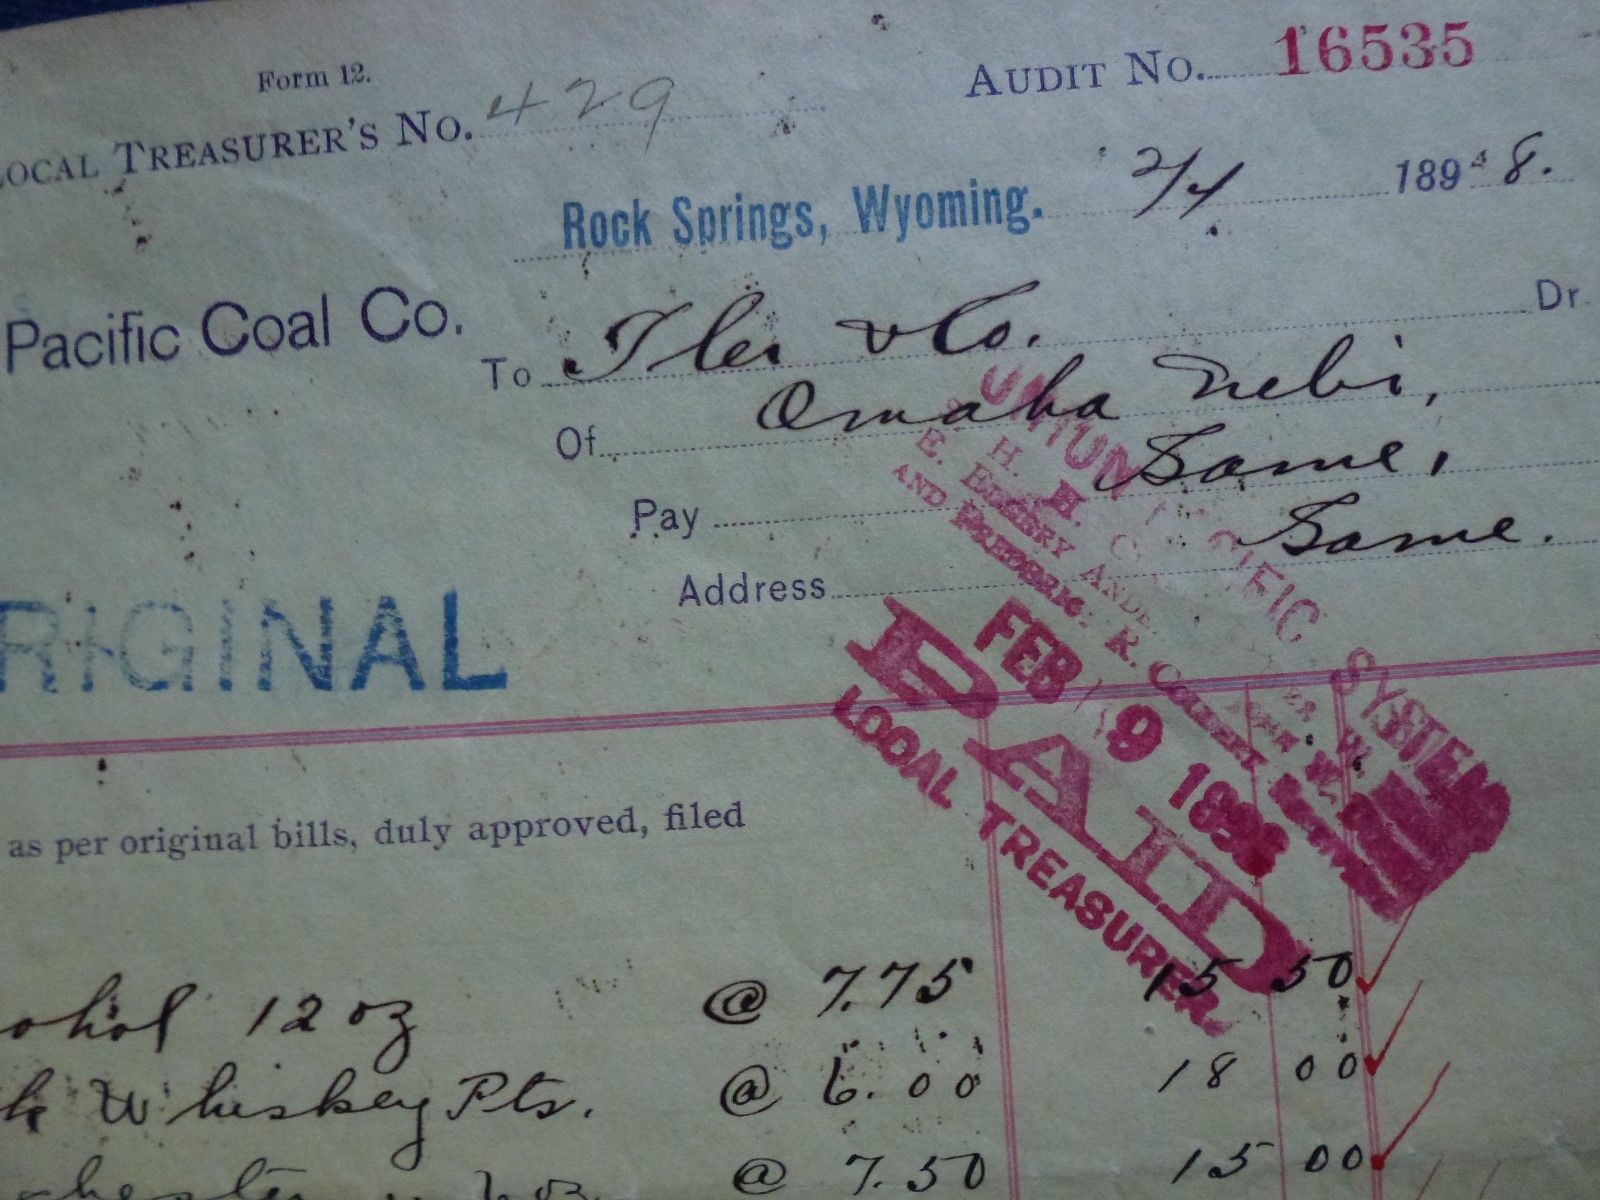 Form 12.
LOCAL TREASURER'S No. 429
AUDIT No. 16535
Rock Springs, Wyoming. 2/4 189 8.
Pacific Coal Co.
To Iler & Co. Dr
Of Omaha Nebr,
Pay Same,
Address Same.
ORIGINAL
UNION PACIFIC SYSTEM
E. ELLERY
AND FREDERIC R.
PAID
FEB 9 1898
LOCAL TREASURER
as per original bills, duly approved, filed
ohol 12 oz @ 7.75 15 50
k Whiskey Pts. @ 6.00 18 00
@ 7.50 15 00